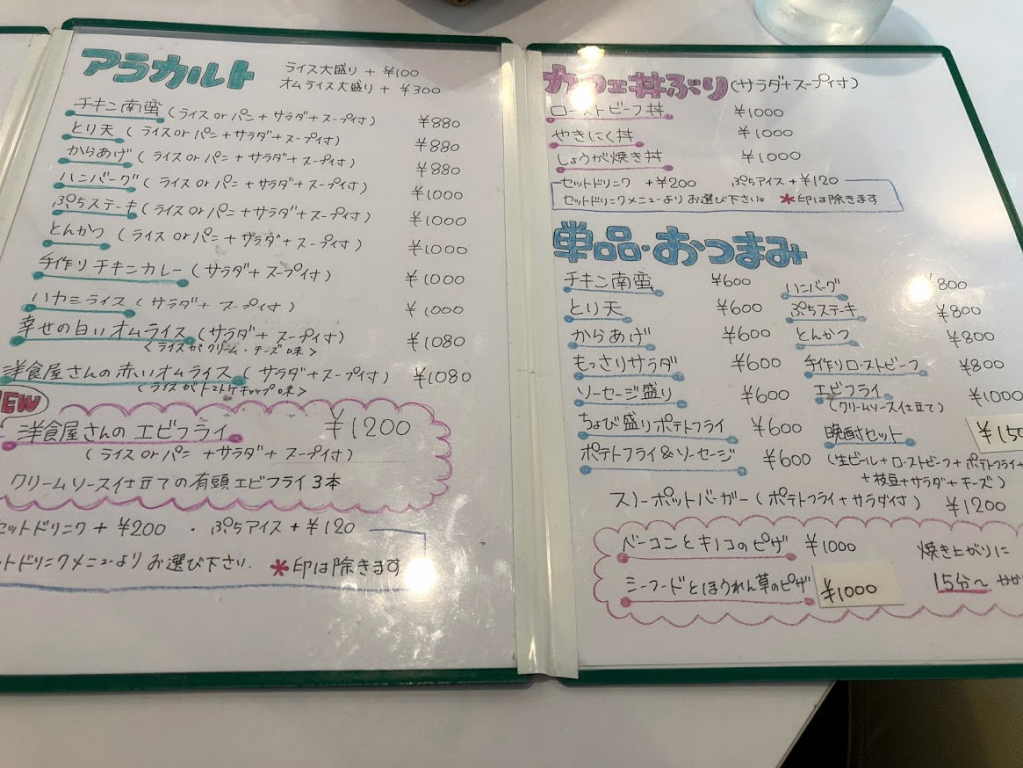 アラカルト
ライス大盛り + ¥100
オムライス大盛り + ¥300
チキン南蛮 (ライス or パン + サラダ + スープ付) ¥880
とり天 (ライス or パン + サラダ + スープ付) ¥880
からあげ (ライス or パン + サラダ + スープ付) ¥880
ハンバーグ (ライス or パン + サラダ + スープ付) ¥1000
ぷちステーキ (ライス or パン + サラダ + スープ付) ¥1000
とんかつ (ライス or パン + サラダ + スープ付) ¥1000
手作りチキンカレー (サラダ + スープ付) ¥1000
ハヤシライス (サラダ + スープ付) ¥1000
幸せの白いオムライス (サラダ + スープ付) ¥1080
<ライスがクリーム・チーズ味>
洋食屋さんの赤いオムライス (サラダ + スープ付) ¥1080
<ライスがトマトケチャップ味>
NEW
洋食屋さんの エビフライ ¥1200
(ライス or パン + サラダ + スープ付)
クリームソース仕立ての有頭エビフライ3本
セットドリンク + ¥200 ・ ぷちアイス + ¥120
ットドリンクメニューより お選び下さい. *印は除きます
カフェ丼ぶり (サラダ+スープ付)
ローストビーフ丼 ¥1000
やきにく丼 ¥1000
しょうが焼き丼 ¥1000
セットドリンク +¥200 ぷちアイス +¥120
セットドリンクメニューより お選び下さい。 *印は除きます
単品・おつまみ
チキン南蛮 ¥600
とり天 ¥600
からあげ ¥600
もっさりサラダ ¥600
ソーセージ盛り ¥600
ちょび盛りポテトフライ ¥600
ポテトフライ&ソーセージ ¥600
ハンバーグ ¥800
ぷちステーキ ¥800
とんかつ ¥800
手作りローストビーフ ¥800
エビフライ ¥1000
(クリームソース仕立て)
晩酌セット
(生ビール + ローストビーフ + ポテトフライ +
+ 枝豆 + サラダ + チーズ)
スノーポットバーガー (ポテトフライ + サラダ付) ¥1200
ベーコンとキノコのピザ ¥1000
シーフードとほうれん草のピザ ¥1000
焼き上がりに
15分〜